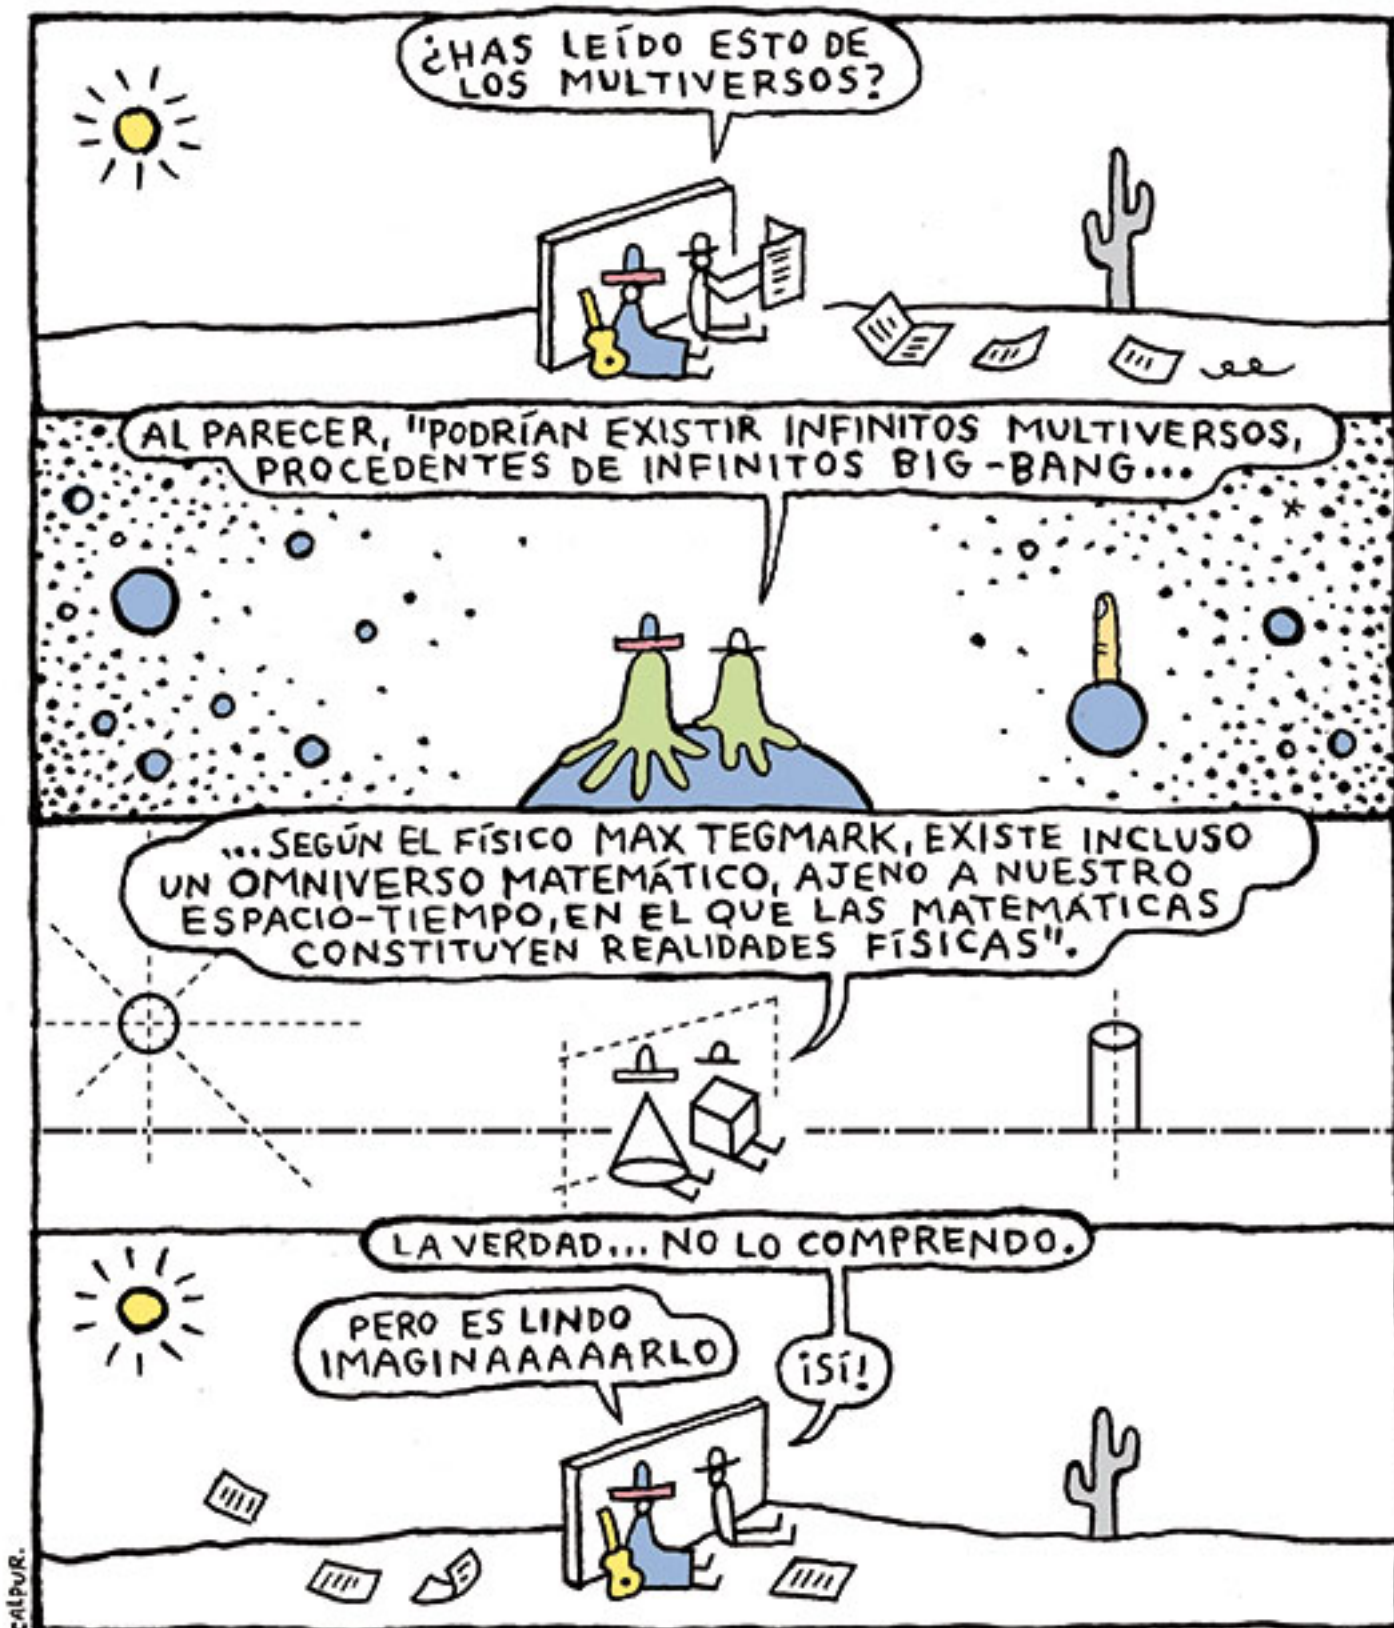 ¿HAS LEÍDO ESTO DE
LOS MULTIVERSOS?
AL PARECER, "PODRÍAN EXISTIR INFINITOS MULTIVERSOS,
PROCEDENTES DE INFINITOS BIG-BANG...
...SEGÚN EL FÍSICO MAX TEGMARK, EXISTE INCLUSO
UN OMNIVERSO MATEMÁTICO, AJENO A NUESTRO
ESPACIO-TIEMPO, EN EL QUE LAS MATEMÁTICAS
CONSTITUYEN REALIDADES FÍSICAS".
LA VERDAD... NO LO COMPRENDO.
PERO ES LINDO
IMAGINAAAAARLO
¡SÍ!